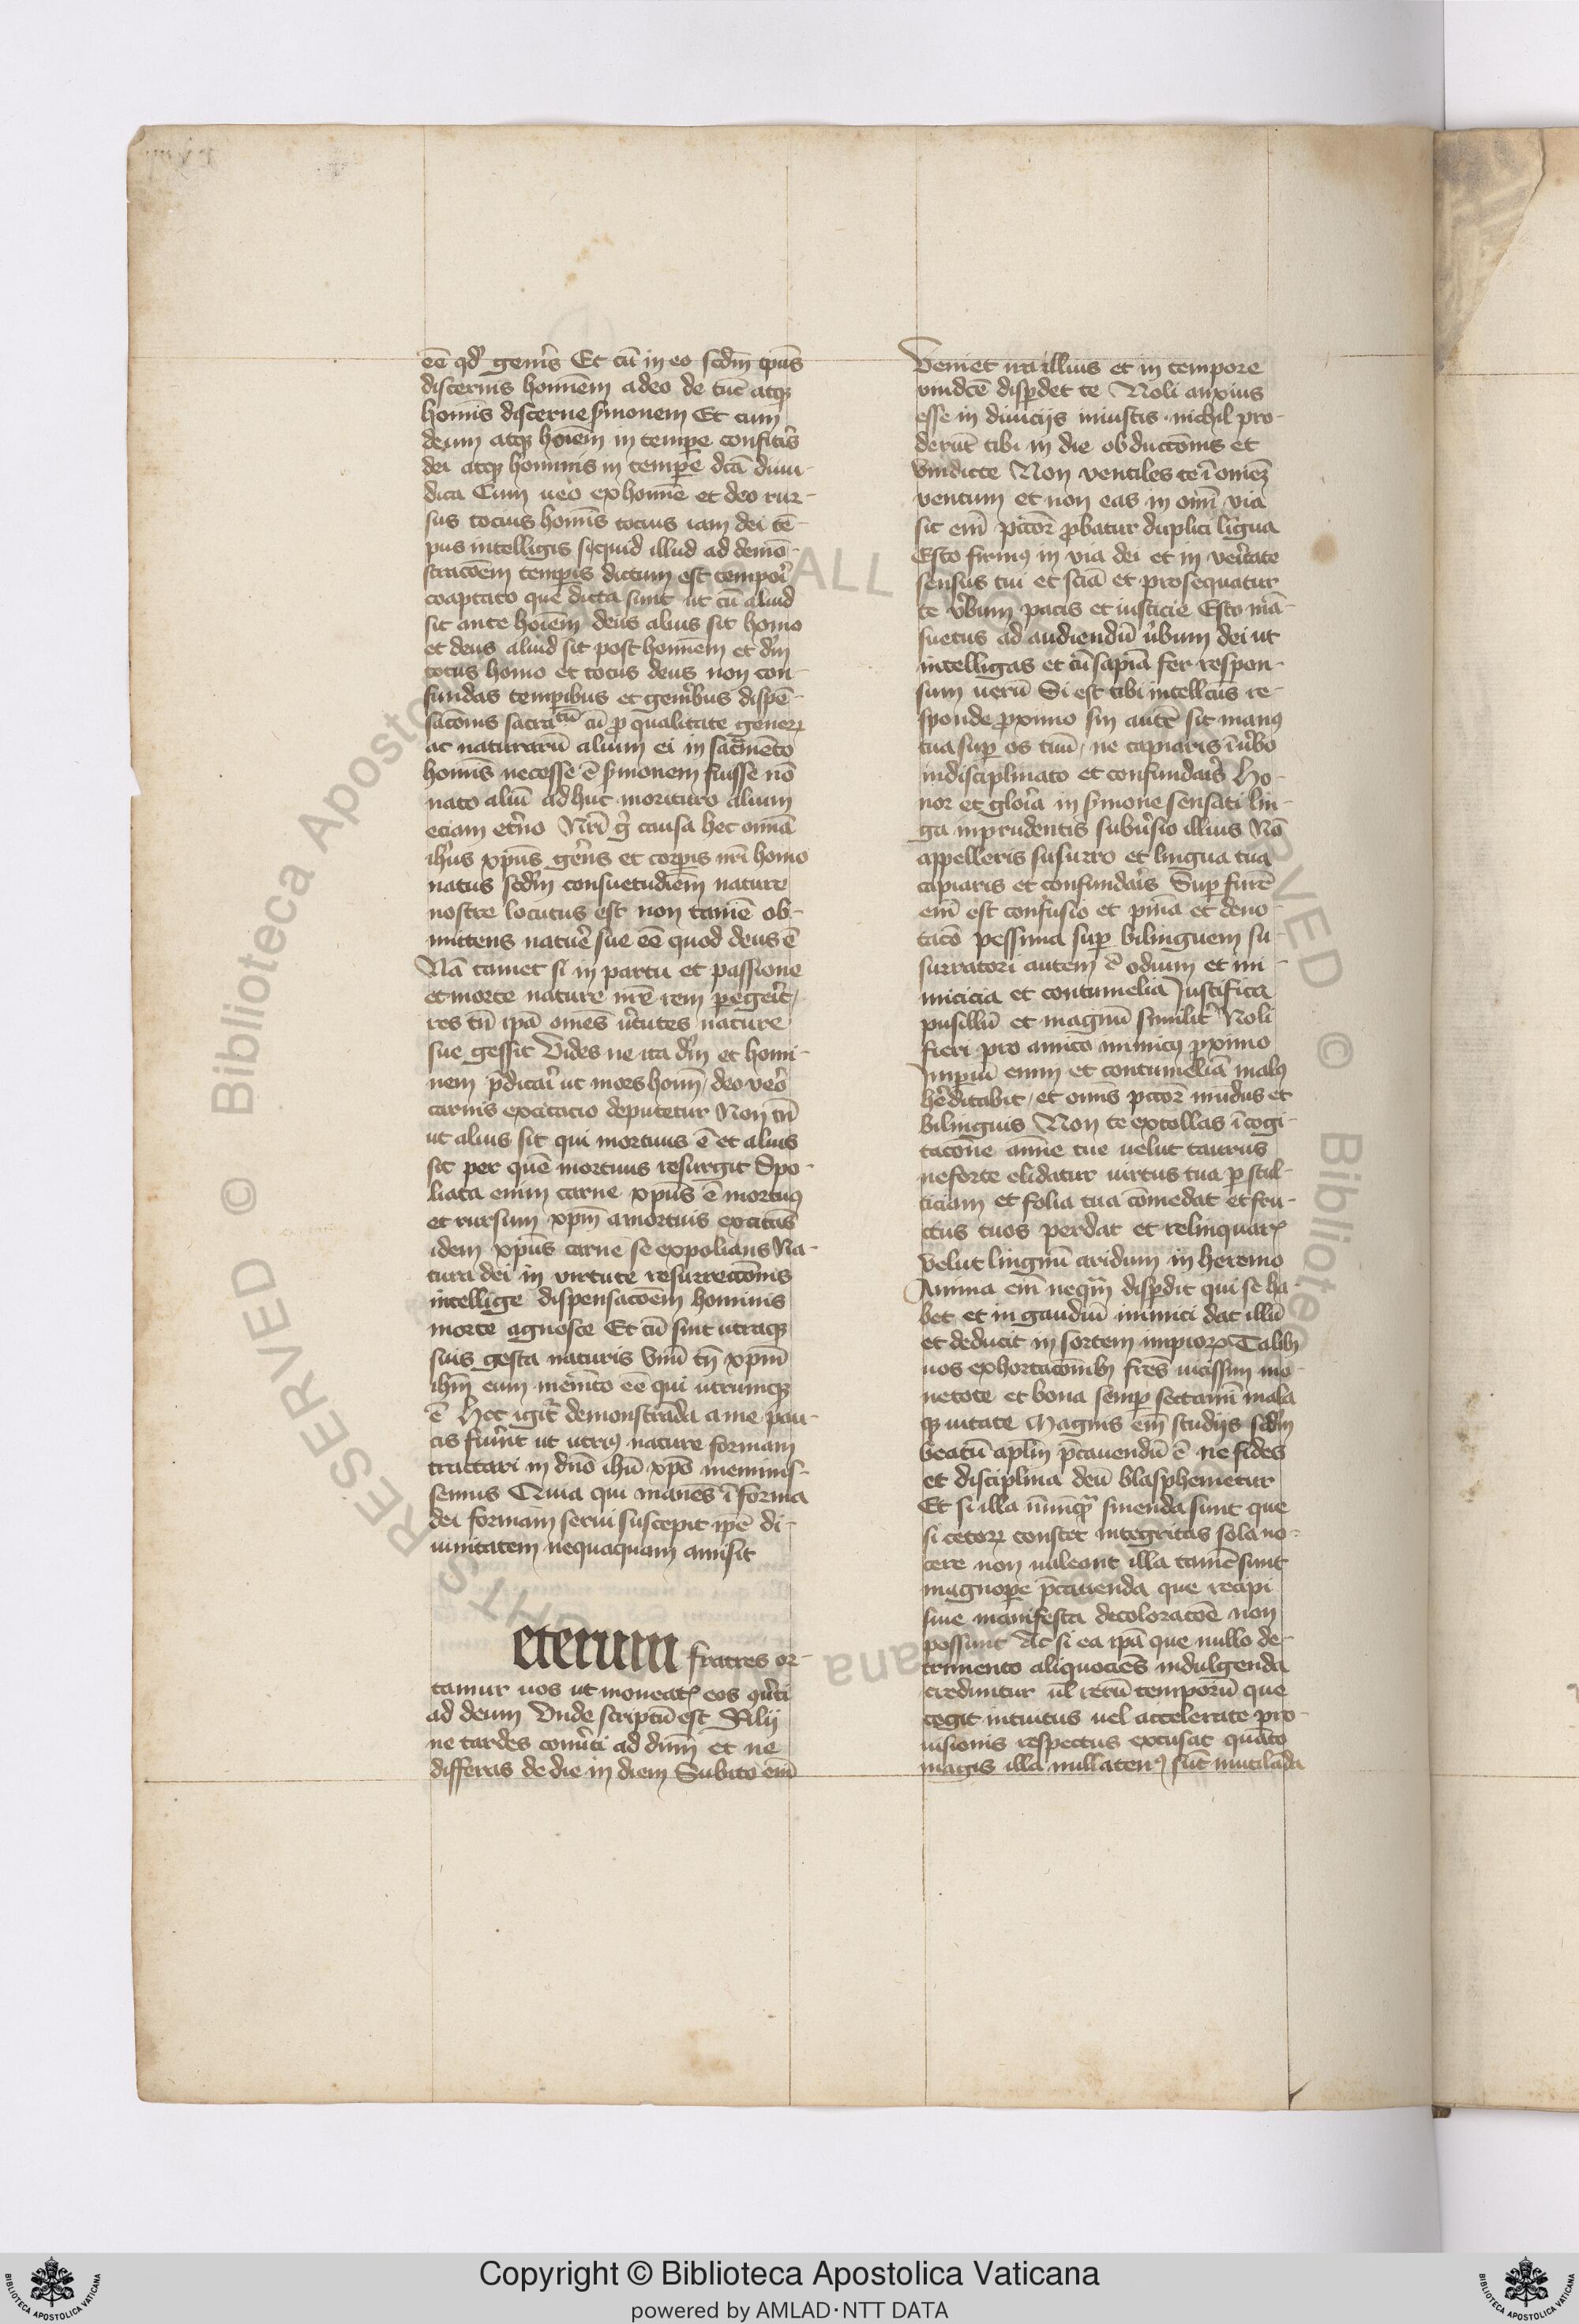 eē qd' genˀis Et cū in eo scdm̄ tp̄us
discernis homīem a deo dei tūc atqꝫ
homīs discerne sˀmonem Et cum
deum atqꝫ hoīem in tempe confitˀis
dei atqꝫ hominis in tempe dc̄ā diiu-
dica Cum ueo ex homīe et deo rur-
sus tocius homīs tocius iam dei tē-
pus intelligis siquid illud ad demō-
stracōem tempis dictum est tempoˀi
coaptato que dicta sunt ut cū aliud
sit ante hoīem deus alius sit homo
et deus aliud sit post homīem et dm̄
totus homo et totus deus non con-
fundas tempibus et genˀibus dispē-
sacōnis sacra cū ꝓ qualitate generꝝ
ac naturarū alium ei in sacͣmēto
homīs necesse ē sˀmonem fuisse nō
nato aliū ad huc morituro alium
eciam etˀno Nrī gͥ causa hec omīa
ihˀus xp̄us genˀis et corpis nrī homo
natus scdm̄ consuetudīem nature
nostre locutus est non tamē ob-
mittens natuˀe sue eē quod deus ē
Nā tamet si in partu et passione
et morte nature nrē rem pegeˀit
res tn̄ ip̄ā omēs uˀtutes nature
sue gessit Vides ne ita dm̄ et homi-
nem p̄dicaˀi ut mors homī deo veˀo
carnis excitacio deputetur Non tn̄
ut alius sit qui mortuus ē et alius
sit per quē mortuus resurgit Spo-
liata enim carne xp̄us ē mortuꝰ
et rursum xp̄m a mortuis excitās
idem xp̄us carne se expolians Na-
tura dei in virtute resurrectōnis
intellige dispensacōem hominis
morte agnosce Et cū sint utraqꝫ
suis gesta naturis Vnū tn̄ xp̄m
ihm̄ eum memēto eē qui utrumqꝫ
ē Hec igitˀ demonstrāda a me pau-
cis fuˀint ut utriꝰ nature formam
tractari in dn̄o ihū xp̄o meminis-
semus Quia qui manēs ī forma
dei formam serui suscepit ip̄e di-
uinitatem nequaquam amisit
eterum fratres or-
tamur uos ut moneatˀ eos quˀti
ad deum Vnde scriptū est Filij
ne tardes conuˀti ad dn̄m et ne
differas de die in diem Subito em̄
Veniet ira illius et in tempore
vindcē dispdet te Noli anxius
esse in diuicijs iniustis nichil pro-
derūt tibi in die obductōnis et
vindicte Non ventiles te ī omēꝫ
ventum et non eas in omī via
sic em̄ pctor̄ ꝓbatur duplici ligua
Esto firmꝰ in via dei et in veˀitate
sensus tui et sciā et prosequatur
te vˀbum pacis et iusticie Esto mā-
suetus ad audiendū uˀbum dei ut
intelligas et cū sapiā fer respon-
sum uerū Si est tibi intellcūs re-
sponde ꝓximo sin autē sit manꝰ
tua sup os tuū ne capiaris ī uˀbo
indisciplinato et confundaˀis Ho-
nor et gloˀia in sˀmone sensati lin-
ga inprudentis subuˀsio illius Nō
appelleris susurro et lingua tua
capiaris et confundaˀis Sup furē
em̄ est confusio et pnīa et deno-
tacō pessima sup bilinguem su-
surratori autem ē odium et ini-
micicia et contumeliā Justifica
pusillū et magnū similitˀ Noli
fieri pro amico inimicꝰ ꝓximo
Inpiū enim et contumeliā malꝰ
heˀditabit et omīs pctor̄ inuidus et
bilinguis Non te extollas ī cogi-
tacōne anīme tue uelut taurus
ne forte elidatur uirtus tua p stul-
ticiam et folia tua comedat et fru-
ctus tuos perdat et relinquarˀ
velut lingnū aridum in heremo
Anima em̄ neqͣm̄ dispdit qui se ha
bet et in gaudiū inimici dat illū
et deducit in sortem impioꝝ Talibꝰ
uos exhortacōnibꝰ frēs uicissim mo-
netote et bona semp sectamī mala
qꝫ uitate Magnis em̄ studijs scdm̄
beatū aplm̄ p̄cauendū ē ne fides
et disciplina deū blasphemetur
Et si illa nūnqͣ sinenda sunt que
si ceterꝝ constet integritas sola no-
cere non ualeant illa tamē sunt
magnope p̄cauenda que recipi
sine manifesta decoloracōe non
possunt Ac si ea ip̄ā que nullo de-
trimento aliquociēs indulgenda
creduntur ul̄ rerū temporū que
cogit intuitus uel accelerate pro-
uisionis respectus excusat quāto
magis illa nullatenꝰ sūt mutilāda
Copyright © Biblioteca Apostolica Vaticana
powered by AMLAD·NTT DATA